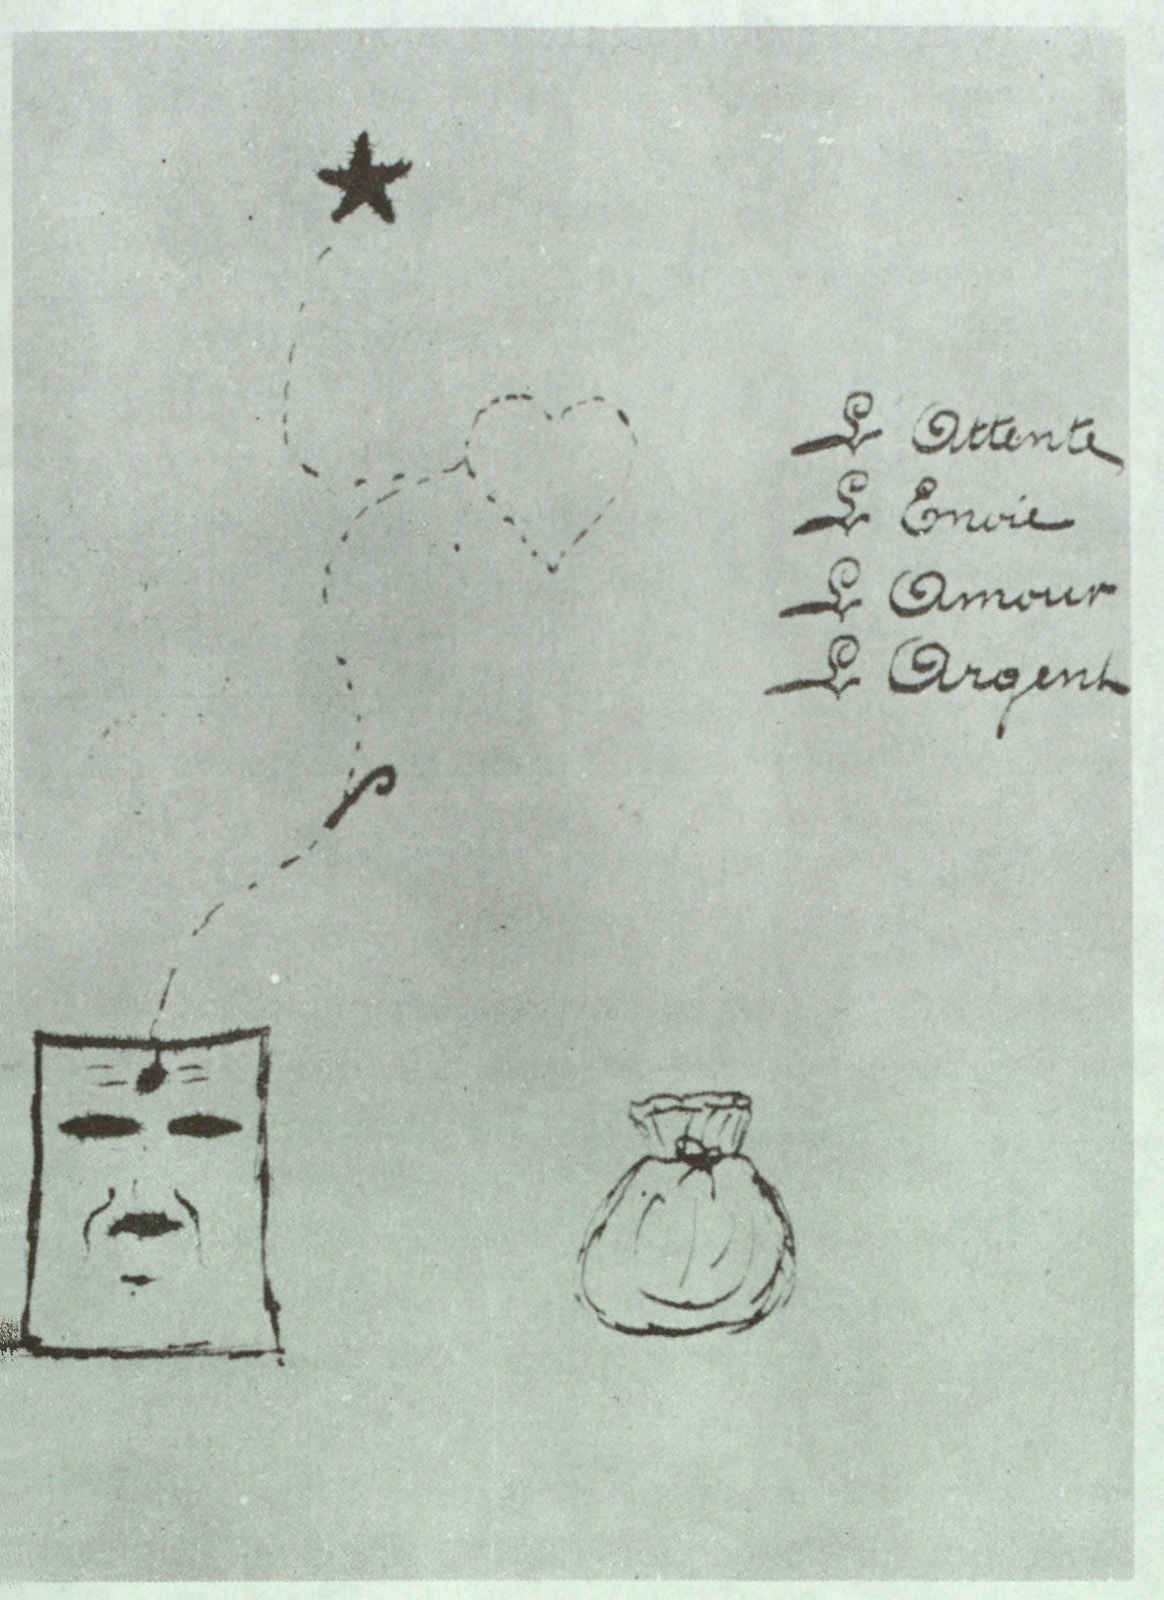 L Attente
L Envie
L Amour
L Argent